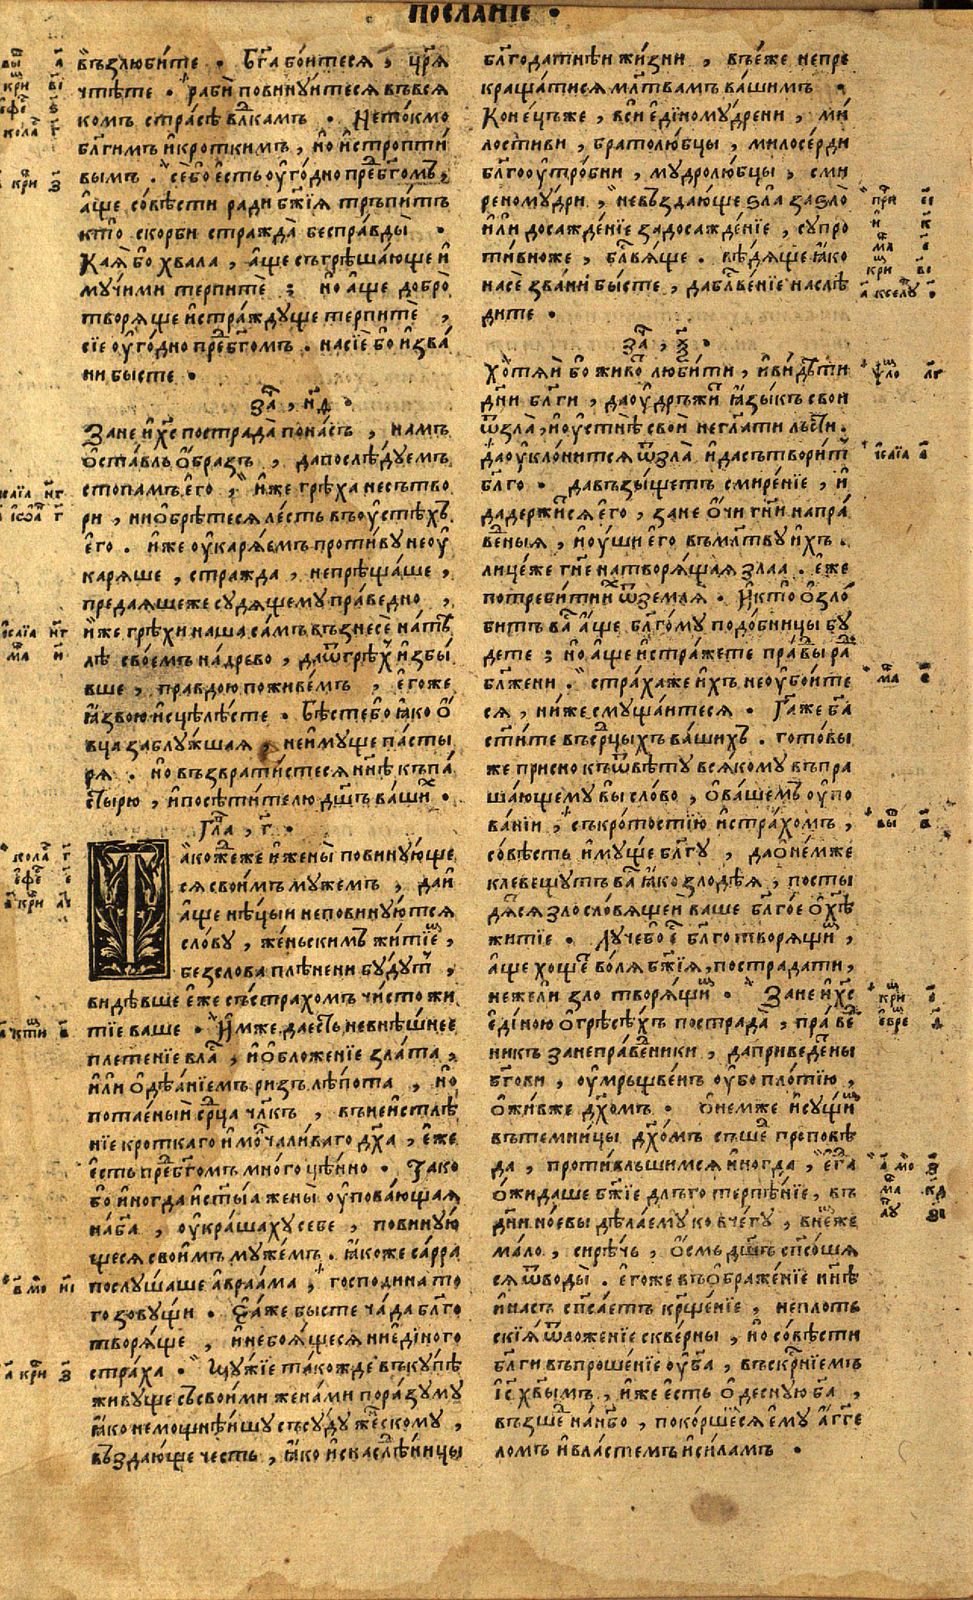 ПОСЛАНІЕ .
възлюбите . Бг҃а бойтеся , цр҃я
чтѣте . раби повинуитеся въвся
комъ страсѣ вл҃камъ . Нетокмо
бл҃гимъ и кроткимъ , но и стропти
вымъ . се бо есть оугодно пред бг҃омъ ,
аще совѣсти ради бж҃ія тръпитъ
кто скорби стражда бесправды .
Кая бо хвала , аще съгрѣшающе и
мучими терпите ; но аще добро
творяще и страждуще терпите ,
сіе оугодно пред бг҃омъ . насіе бо изва
ни бысте .
за҃ , н҃д .
Зане и х҃с пострада понасъ , намъ
оставль образъ , да послѣдуемъ
стопамъ его , иже грѣха несътво
ри , ни обрѣтеся лесть въ оустѣхъ
его . иже оукаряемъ противу неоу
каряше , стражда , непрѣщаше ,
предаяшеже судящему праведно ,
иже грѣхи наша самъ възнесе натѣ
лѣ своемъ надрево , да ѿ грѣх избы
вше , правдою поживемъ , егоже
язвою исцѣлѣсте . Бѣсте бо яко о
вца заблужшая , неимуще пасты
ря . но възвратистеся нн҃ѣ къ па
стырю , и посѣтителю дш҃ъ ваших .
Гла҃ , г҃ .
Такожеже и жены повинующе
ся своимъ мужемъ , да и
аще нѣцыи неповинуются
слову , женьскимъ житіем ,
безслова плѣнени будут ,
видѣвше еже съ страхомъ чисто жи
тіе ваше . Имже да есть невнѣшнее
плетеніе влас , и обложеніе злата ,
или одѣаніемъ ризъ лѣпота , но
потаеный срд҃ца чл҃къ , въ неистлѣ
ніе кроткаго и молчаливаго дх҃а , еже
есть пред бг҃омъ многоцѣнно . Тако
бо иногда и ст҃ыа жены оуповающая
на бг҃а , оукрашаху себе , повиную
щеся своимъ мужемъ . якоже сарра
послушаше авраама , господина то
го зовущи . Еяже бысте чада бл҃го
творяще , и небоящеся ниединого
страха . Мужіе такожде въкупѣ
живуще съ своими женами поразуму
яко немощнѣишу съсуду женскому ,
въздающе честь , яко и снаслѣдницы
бл҃годатнѣи жизни , въ еже непре
кращатися мл҃твамъ вашимъ .
Конецъже , вси единомудрени , ми
лостиви , братолюбцы , милосерди
бл҃гооутробни , мудролюбцы , сми
реномудри , невъздающе ѕла за ѕло
или досажденіе за досажденіе , супро
тивноже , бл҃вяще . вѣдяще яко
на се звани бысте , да бл҃веніе наслѣ
дите .
за҃ , .
Хотяй бо живот любити , и видѣти
дни бл҃ги , да оудръжит языкъ свои
ѿ зла , и оустнѣ свои неглаголати льсти .
да оуклонится ѿ зла и да сътворит
бл҃го . да взыщетъ смиреніе , и
да держится его , зане очи гн҃и напра
веныя , и оуши его въ мл҃тву ихъ .
лицеже гн҃е на творящая злаа . еже
потребити их ѿ земля . И кто озло
битъ вас аще бл҃гому подобницы бу
дете ; но аще и стражете правды рад
бл҃жени . страхаже ихъ неоубоите
ся , ниже смущаитеся . Га҃же бг҃а
ст҃ите въ срд҃цыхъ вашихъ . готовы
же присно къ ѿвѣту всякому въпра
шающему вы слово , о вашемъ оупо
ваніи , съ кротостію и страхомъ ,
совѣсть имуще бл҃гу , да о немже
клевещутъ вас яко злодѣя , посты
дятся злословящеи ваше бл҃гое о хр҃тѣ
житіе . Лучебо ест бл҃готворящим ,
аще хощет воля бж҃ія , пострадати ,
нежели зло творящим . Зане и х҃с
единою о грѣсѣхъ пострада , правед
никъ за неправедники , да приведет ны
бг҃ови , оумрьщвенъ оубо плотію ,
оживже дх҃омъ . о немже и сущим
въ темницы дх҃омъ съшед проповѣ
да , противльшимся иногда , егда
ожидаше бж҃іе дльготерпѣніе , въ
дни ноевы дѣлаему ковчегу , в немже
мало , сирѣчь , осмь дш҃ъ сп҃сошя
ся ѿ воды . егоже въображеніе нн҃ѣ
и насъ сп҃саетъ крещеніе , неплоть
скія ѿложеніе скверны , но совѣсти
бл҃ги въпрошеніе оу бг҃а , въскр҃ніемъ
іс҃ хв҃ымъ , иже есть о десную бг҃а ,
възшед на небо , покоршеся ему агге
ломъ и властемъ и силамъ .